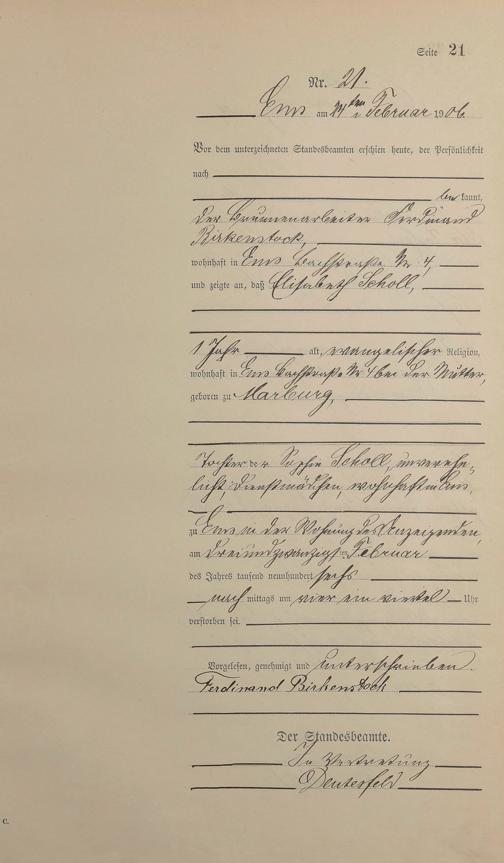 Seite 21
Nr. 21.
Ems am 24ten Februar 1906.
Vor dem unterzeichneten Standesbeamten erschien heute, der Persönlichkeit
nach
bekannt,
der Brunnenarbeiter Ferdinand
Birkenstock,
wohnhaft in Ems Bachstraße Nr 4,
und zeigte an, daß Elisabeth Scholl,
1 Jahr alt, evangelischer Religion,
wohnhaft in Ems Bachstraße Nr 4 bei der Mutter,
geboren zu Marburg,
Tochter der Sophie Scholl, unverehe-
licht, Dienstmädchen, wohnhaft in Ems,
zu Ems in der Wohnung des Anzeigenden,
am dreiundzwanzigsten Februar
des Jahres tausend neunhundert sechs
nachmittags um vier ein viertel Uhr
verstorben sei.
Vorgelesen, genehmigt und unterschrieben.
Ferdinand Birkenstock
Der Standesbeamte.
In Vertretung
C.